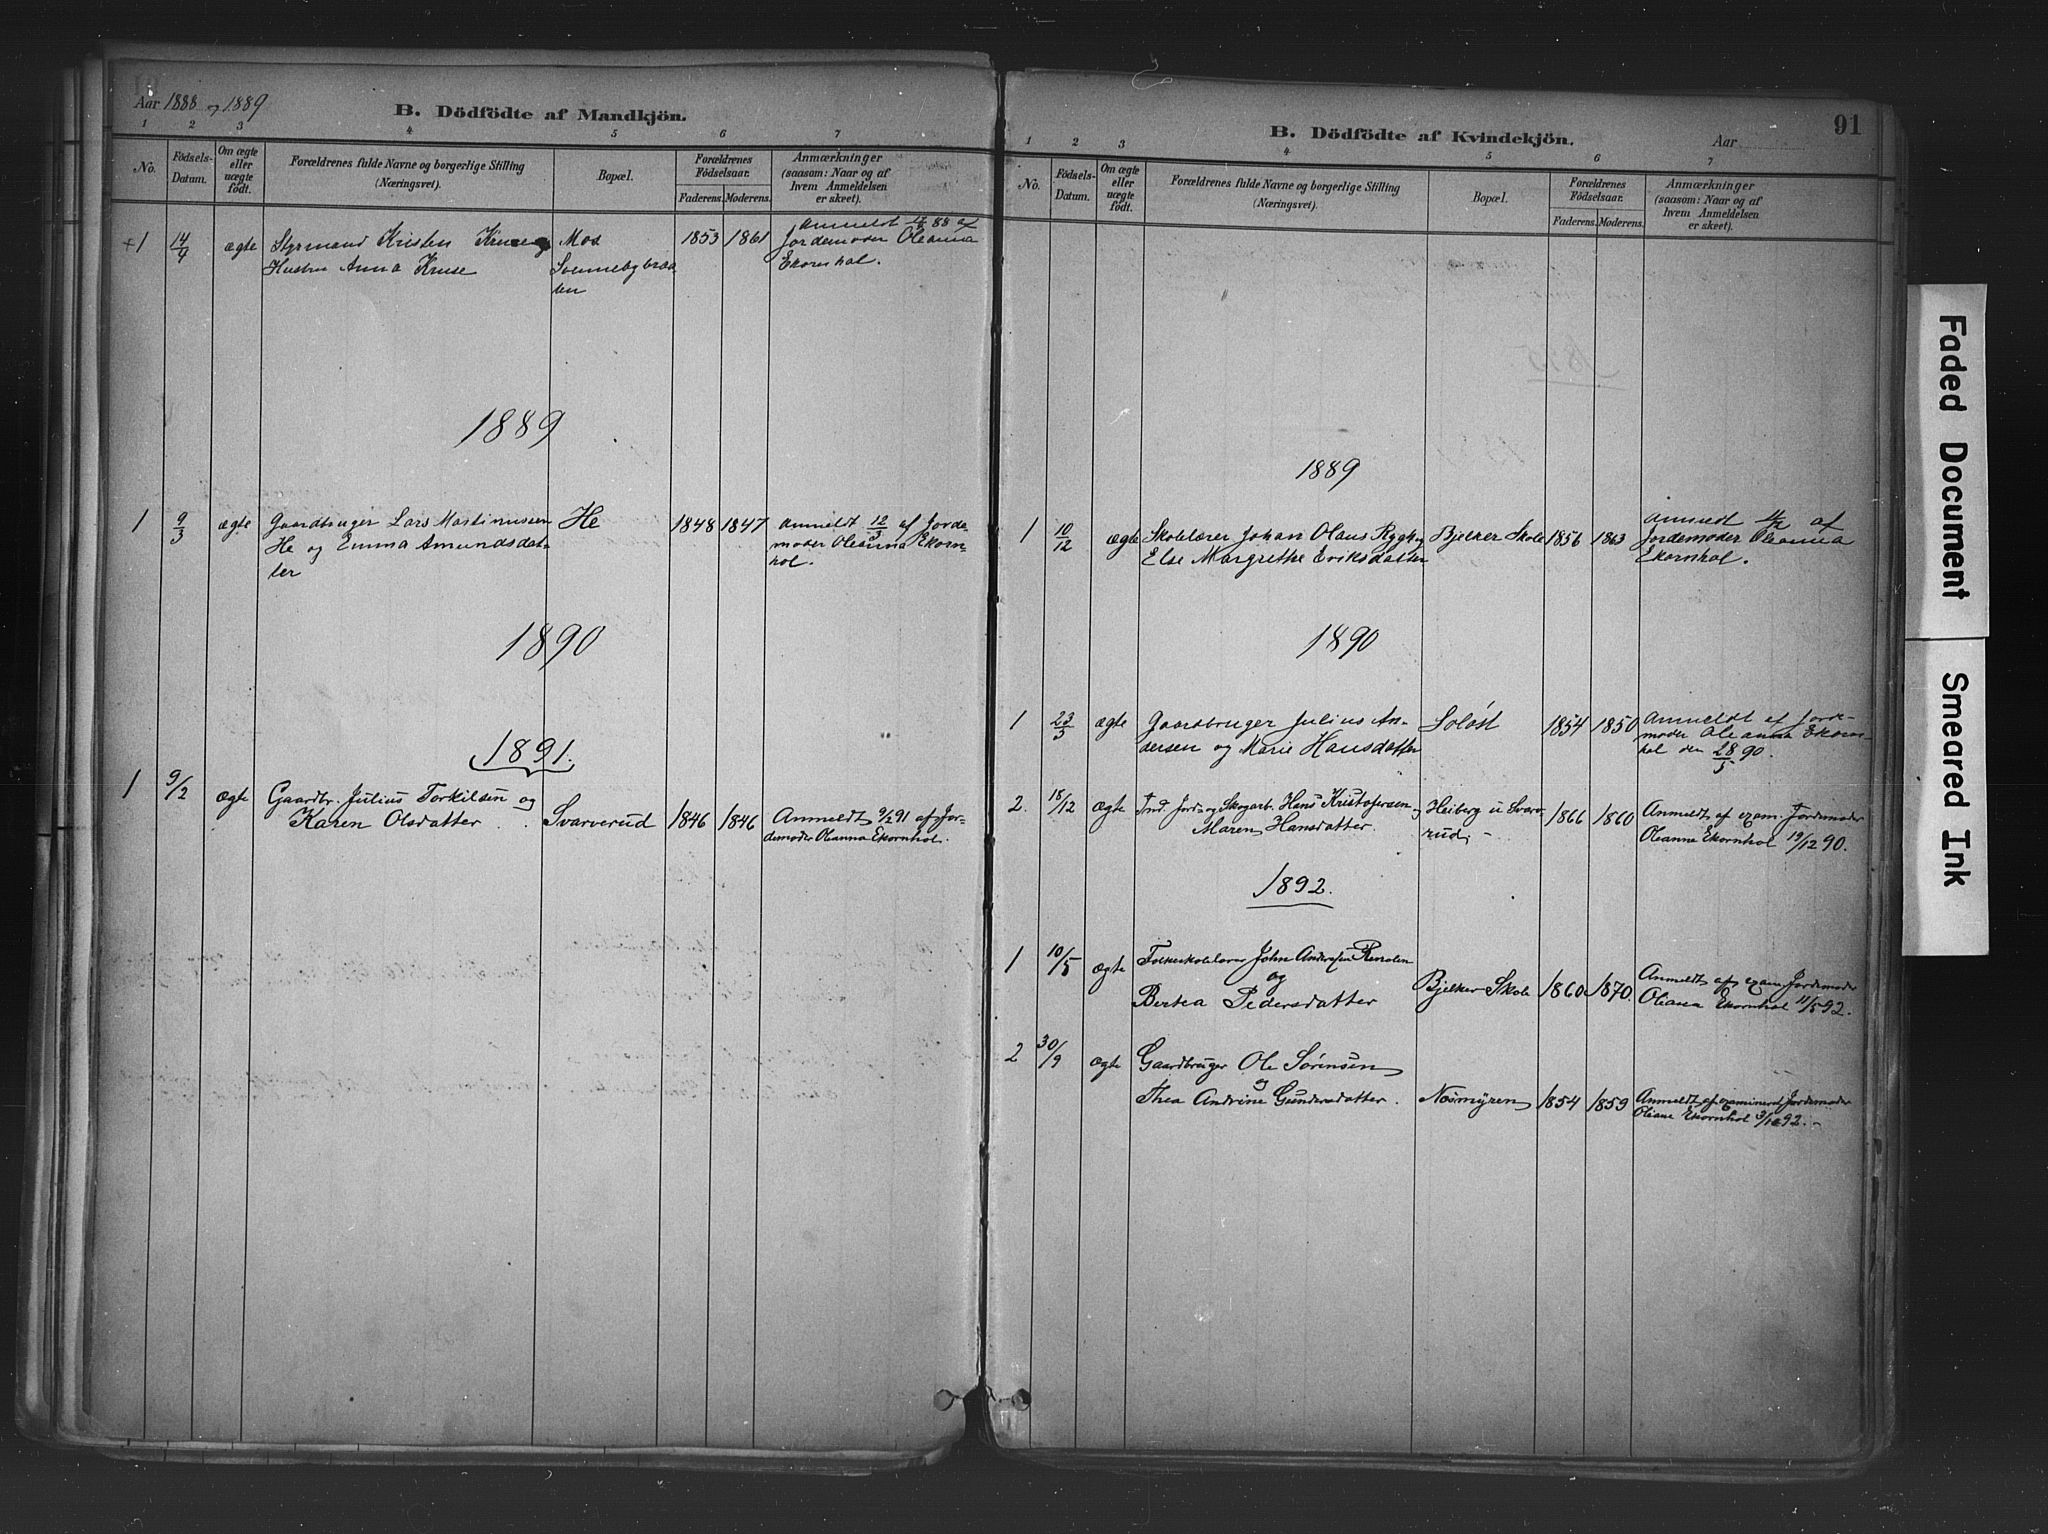 Aar 1888 og 1889
B. Dödfödte af Mandkjön.
1 2 3 4 5 6 7
No. Födsels-Datum. Om ægte eller uægte födt. Forældrenes fulde Navne og borgerlige Stilling (Næringsvei). Bopæl. Forældrenes Födselsaar. Faderens. Moderens. Anmærkninger (saasom: Naar og af hvem Anmeldelsen er skeet).
+1 14/4 ægte Styrmand Kristen Kruse og Mos 1853 1861 Anmeldt 88 af
Hustru Anna Kruse Jordemoder Oleanna
Ekornhol.
1889
1 9/3 ægte Gaardbruger Lars Martinussen He 1848 1847 Anmeldt 12/3 af Jorde
He og Emma Amundsdat- moder Oleanna Ekorn
ter hol.
1890
1891.
1 9/2 ægte Gaardbr. Julius Torkilsen og Svarverud 1846 1846 Anmeldt 9/2 91 af Jor-
Karen Olsdatter demoder Oleanna Ekornhol.
91
B. Dödfödte af Kvindekjön. Aar
1 2 3 4 5 6 7
No. Födsels-Datum. Om ægte eller uægte födt. Forældrenes fulde Navne og borgerlige Stilling (Næringsvei). Bopæl. Forældrenes Födselsaar. Faderens. Moderens. Anmærkninger (saasom: Naar og af hvem Anmeldelsen er skeet).
1889
1 10/12 ægte Skolelærer Johan Olaus Bjelker Skole 1856 1863 Anmeldt af
Else Margrethe Eriksdatter Jordemoder Oleanna
Ekornhol.
1890
1 23/5 ægte Gaardbruger Julius An- Soløst 1854 1850 Anmeldt af Jorde-
dersen og Marie Hansdatter moder Oleanna Ekorn
hol den 28/5 90.
2. 18/12 ægte Ind. Jord- og Skogarb. Hans Kristofersen og Heiberg u Svarve- 1866 1860 Anmeldt af exam. Jordemoder
Maren Hansdatter. rud. - Oleanna Ekornhol 19/12 90.
1892.
1 10/5 ægte Folkeskolelærer John Andersen
og
Bertea Pedersdatter Bjelker Skole 1860 1870. Anmeldt af exam. Jordemoder
Oleana Ekornhol 11/5 92.
2 30/9 ægte Gaardbruger Ole Sørensen
og
Thea Andrine Gundersdatter. Næsmyren 1854 1859 Anmeldt af examineret Jordemoder
Oliane Ekornhol 3/10 92. -
Faded Document
Smeared Ink